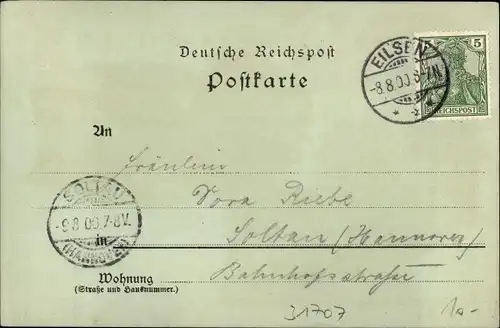 Deutsche Reichspost
Postkarte
EILSEN
-8.8.00.6-7N.
* *
5
REICHSPOST
An
Fräulein
Dora Riebe
Soltau (Hannover)
Bahnhofsstraße
SOLTAU
-9.8.00.7-8V.
(HANNOVER)
in
Wohnung
(Straße und Hausnummer.)
31707
1a-